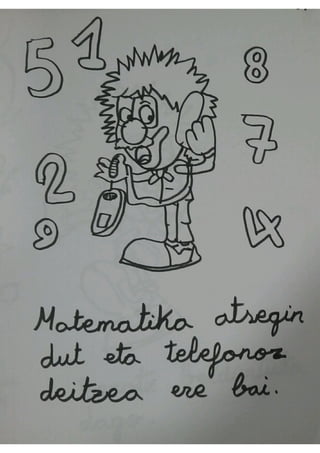 5 1 8
7
2
9 4
Matematika atsegin
dut eta telefonoz
deitzea ere bai.